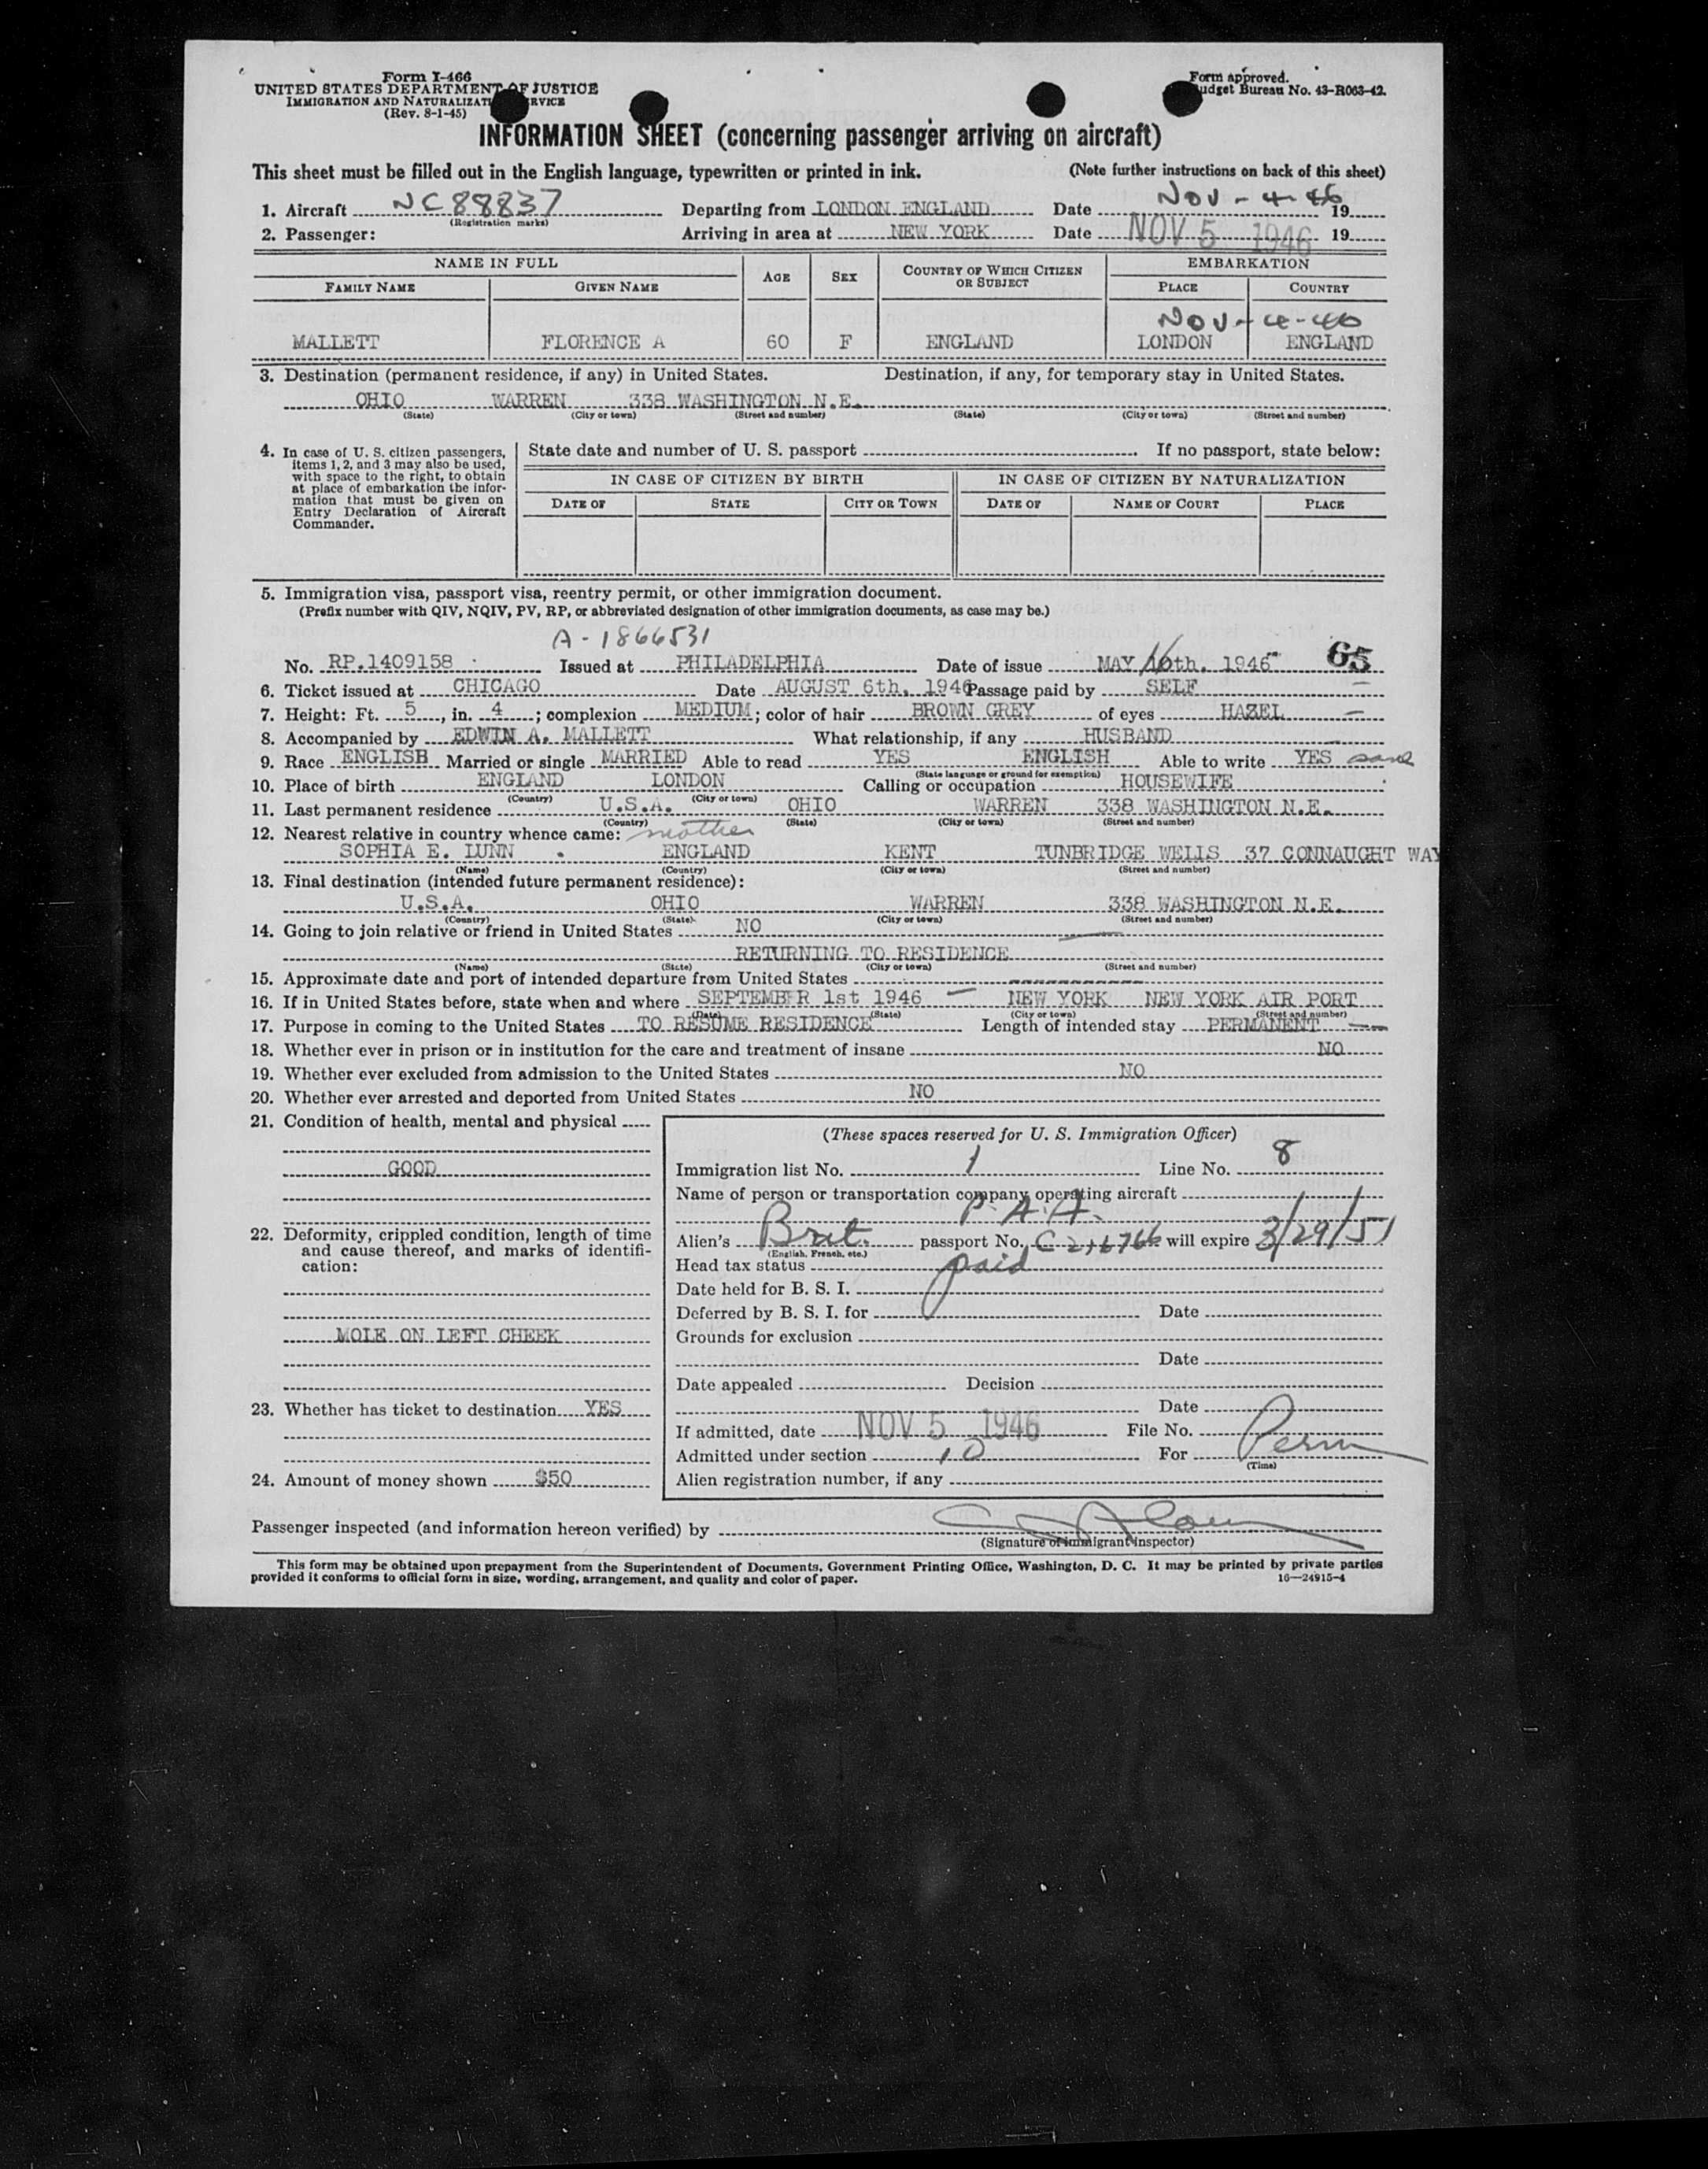 Form I-466
UNITED STATES DEPARTMENT OF JUSTICE
IMMIGRATION AND NATURALIZATI RVICE
(Rev. 8-1-45)
Form approved.
udget Bureau No. 43-R063-42.
INFORMATION SHEET (concerning passenger arriving on aircraft)
This sheet must be filled out in the English language, typewritten or printed in ink. (Note further instructions on back of this sheet)
1. Aircraft NC88837 Departing from LONDON ENGLAND Date NOV-4-46 19
(Registration marks)
2. Passenger: Arriving in area at NEW YORK Date NOV 5 1946 19
NAME IN FULL AGE SEX COUNTRY OF WHICH CITIZEN OR SUBJECT EMBARKATION
FAMILY NAME GIVEN NAME PLACE COUNTRY
NOV-4-46
MALLETT FLORENCE A 60 F ENGLAND LONDON ENGLAND
3. Destination (permanent residence, if any) in United States. Destination, if any, for temporary stay in United States.
OHIO WARREN 338 WASHINGTON N.E.
(State) (City or town) (Street and number) (State) (City or town) (Street and number)
4. In case of U. S. citizen passengers, items 1, 2, and 3 may also be used, with space to the right, to obtain at place of embarkation the information that must be given on Entry Declaration of Aircraft Commander.
State date and number of U. S. passport If no passport, state below:
IN CASE OF CITIZEN BY BIRTH IN CASE OF CITIZEN BY NATURALIZATION
DATE OF STATE CITY OR TOWN DATE OF NAME OF COURT PLACE
5. Immigration visa, passport visa, reentry permit, or other immigration document.
(Prefix number with QIV, NQIV, PV, RP, or abbreviated designation of other immigration documents, as case may be.)
A-1866531
No. RP.1409158 Issued at PHILADELPHIA Date of issue MAY 16th. 1946 65
6. Ticket issued at CHICAGO Date AUGUST 6th, 1946 Passage paid by SELF
7. Height: Ft. 5, in. 4; complexion MEDIUM; color of hair BROWN GREY of eyes HAZEL
8. Accompanied by EDWIN A. MALLETT What relationship, if any HUSBAND
9. Race ENGLISH Married or single MARRIED Able to read YES ENGLISH Able to write YES same
(State language or ground for exemption)
10. Place of birth ENGLAND LONDON Calling or occupation HOUSEWIFE
(Country) (City or town)
11. Last permanent residence U.S.A. OHIO WARREN 338 WASHINGTON N.E.
(Country) (State) (City or town) (Street and number)
12. Nearest relative in country whence came: mother
SOPHIA E. LUNN ENGLAND KENT TUNBRIDGE WELLS 37 CONNAUGHT WAY
(Name) (Country) (City or town) (Street and number)
13. Final destination (intended future permanent residence):
U.S.A. OHIO WARREN 338 WASHINGTON N.E.
(Country) (State) (City or town) (Street and number)
14. Going to join relative or friend in United States NO
RETURNING TO RESIDENCE
(Name) (State) (City or town) (Street and number)
15. Approximate date and port of intended departure from United States
16. If in United States before, state when and where SEPTEMBER 1st 1946 NEW YORK NEW YORK AIR PORT
(Date) (State) (City or town) (Street and number)
17. Purpose in coming to the United States TO RESUME RESIDENCE Length of intended stay PERMANENT
18. Whether ever in prison or in institution for the care and treatment of insane NO
19. Whether ever excluded from admission to the United States NO
20. Whether ever arrested and deported from United States NO
21. Condition of health, mental and physical
GOOD
22. Deformity, crippled condition, length of time and cause thereof, and marks of identification:
MOLE ON LEFT CHEEK
23. Whether has ticket to destination YES
24. Amount of money shown $50
(These spaces reserved for U. S. Immigration Officer)
Immigration list No. 1 Line No. 8
Name of person or transportation company operating aircraft
P.A.A.
Alien's Brit. passport No. will expire 3/29/51
(English, French, etc.)
Head tax status paid
Date held for B. S. I.
Deferred by B. S. I. for Date
Grounds for exclusion
Date
Date appealed Decision
Date
If admitted, date NOV 5 1946 File No.
Admitted under section 10 For Perm
(Time)
Alien registration number, if any
Passenger inspected (and information hereon verified) by
(Signature of immigrant inspector)
This form may be obtained upon prepayment from the Superintendent of Documents, Government Printing Office, Washington, D. C. It may be printed by private parties
provided it conforms to official form in size, wording, arrangement, and quality and color of paper. 16—24915-4